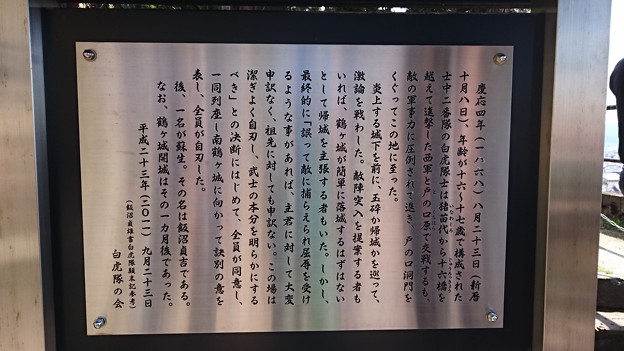 慶応四年(一八六八)八月二十三日(新暦
十月八日)、年齢が十六〜十七歳で構成された
士中二番隊の白虎隊士は猪苗代から十六橋を
越えて進撃した西軍と戸の口原で交戦するも、
敵の軍事力に圧倒されて退き、戸の口洞門を
くぐってこの地に至った。
炎上する城下を前に、玉砕か帰城かを巡って、
激論を戦わした。敵陣突入を提案する者も
いれば、鶴ヶ城が簡単に落城するはずはない
として帰城を主張する者もいた。しかし、
最終的に「誤って敵に捕らえられ屈辱を受け
るような事があれば、主君に対して大変
申訳なく、祖先に対しても申訳ない。この場は
潔ぎよく自刃し、武士の本分を明らかにする
べき」との決断にはじめて、全員が同意し、
一同列座し南鶴ヶ城に向かって訣別の意を
表し、全員が自刃した。
後、一名が蘇生。その名は飯沼貞吉である。
なお、鶴ヶ城開城はその一カ月後であった。
平成二十三年(二〇一一)九月二十三日
(飯沼貞雄書白虎隊顛末記参考)
白虎隊の会